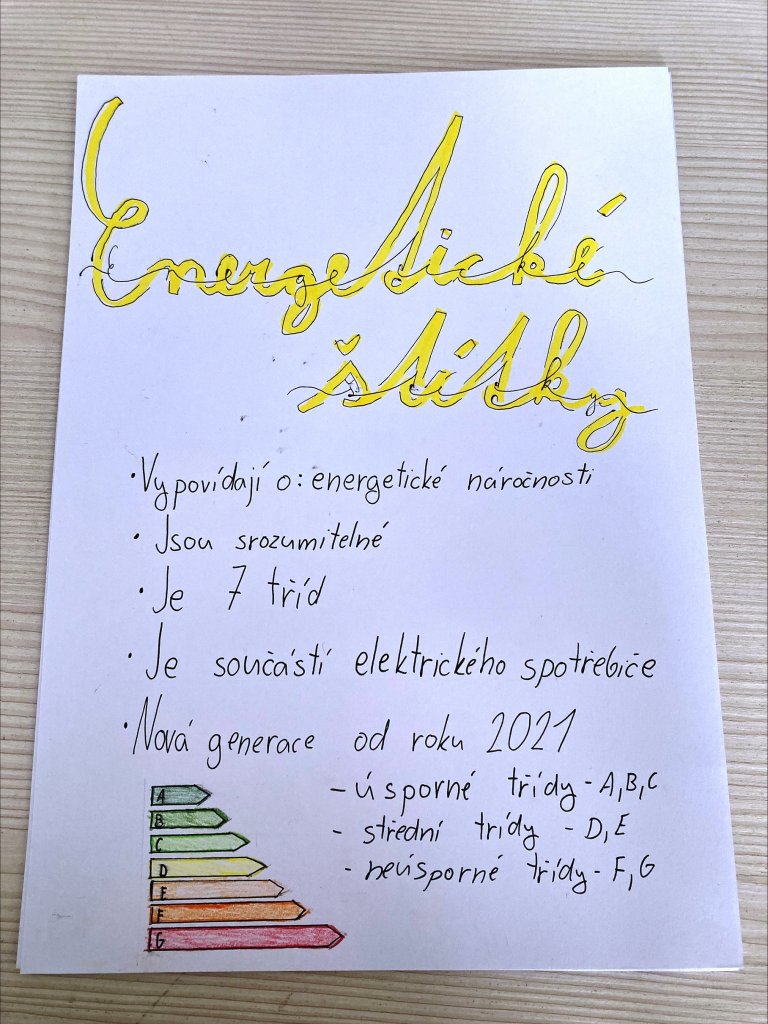 Energetické
štítky
• Vypovídají o: energetické náročnosti
• Jsou srozumitelné
• Je 7 tříd
• Je součástí elektrického spotřebiče
• Nová generace od roku 2021
- úsporné třídy - A,B,C
- střední třídy - D,E
- neúsporné třídy - F,G
A
B
C
D
E
F
G